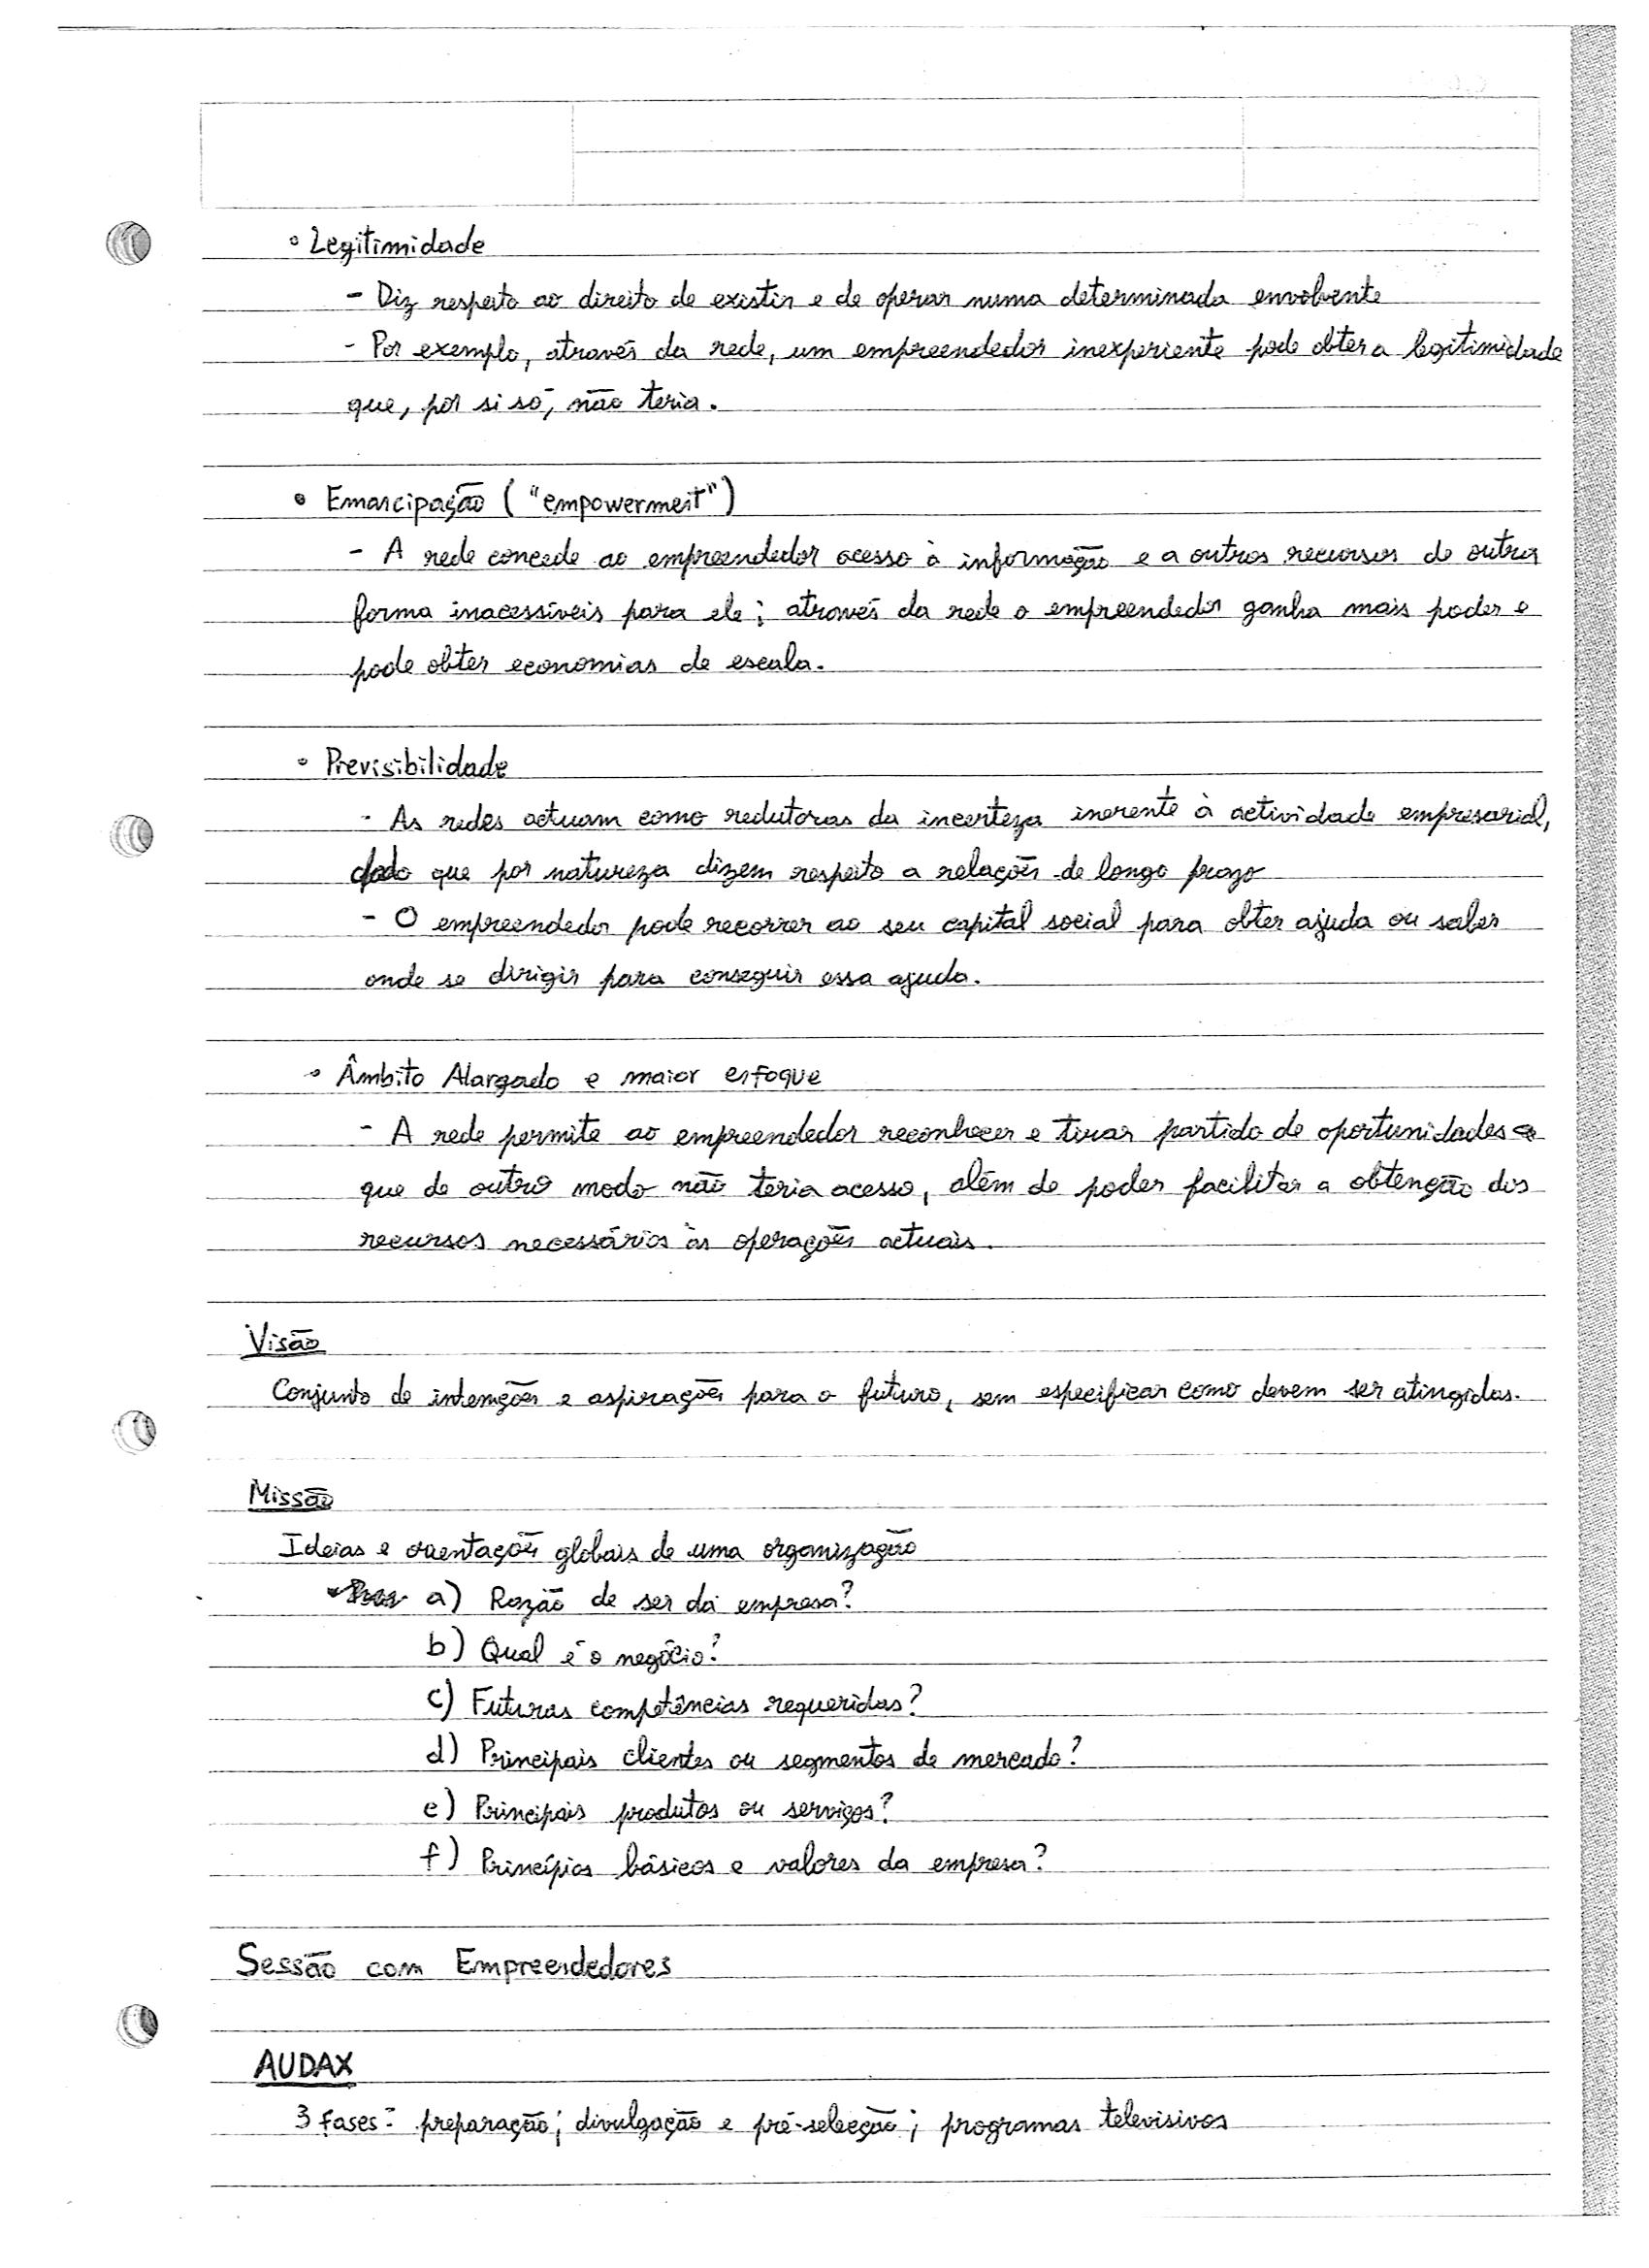 • Legitimidade
- Diz respeito ao direito de existir e de operar numa determinada envolvente
- Por exemplo, através da rede, um empreendedor inexperiente pode obter a legitimidade
que, por si só, não teria.
• Emancipação ("empowerment")
- A rede concede ao empreendedor acesso à informação e a outros recursos de outra
forma inacessíveis para ele; através da rede o empreendedor ganha mais poder e
pode obter economias de escala.
• Previsibilidade
- As redes actuam como redutoras da incerteza inerente à actividade empresarial,
dado que por natureza dizem respeito a relações de longo prazo
- O empreendedor pode recorrer ao seu capital social para obter ajuda ou saber
onde se dirigir para conseguir essa ajuda.
• Âmbito Alargado e maior enfoque
- A rede permite ao empreendedor reconhecer e tirar partido de oportunidades a
que de outro modo não teria acesso, além de poder facilitar a obtenção dos
recursos necessários às operações actuais.
Visão
Conjunto de intenções e aspirações para o futuro, sem especificar como devem ser atingidas.
Missão
Ideias e orientações globais de uma organização
a) Razão de ser da empresa?
b) Qual é o negócio?
c) Futuras competências requeridas?
d) Principais clientes ou segmentos de mercado?
e) Principais produtos ou serviços?
f) Princípios básicos e valores da empresa?
Sessão com Empreendedores
AUDAX
3 Fases: preparação; divulgação e pré-selecção; programas televisivos